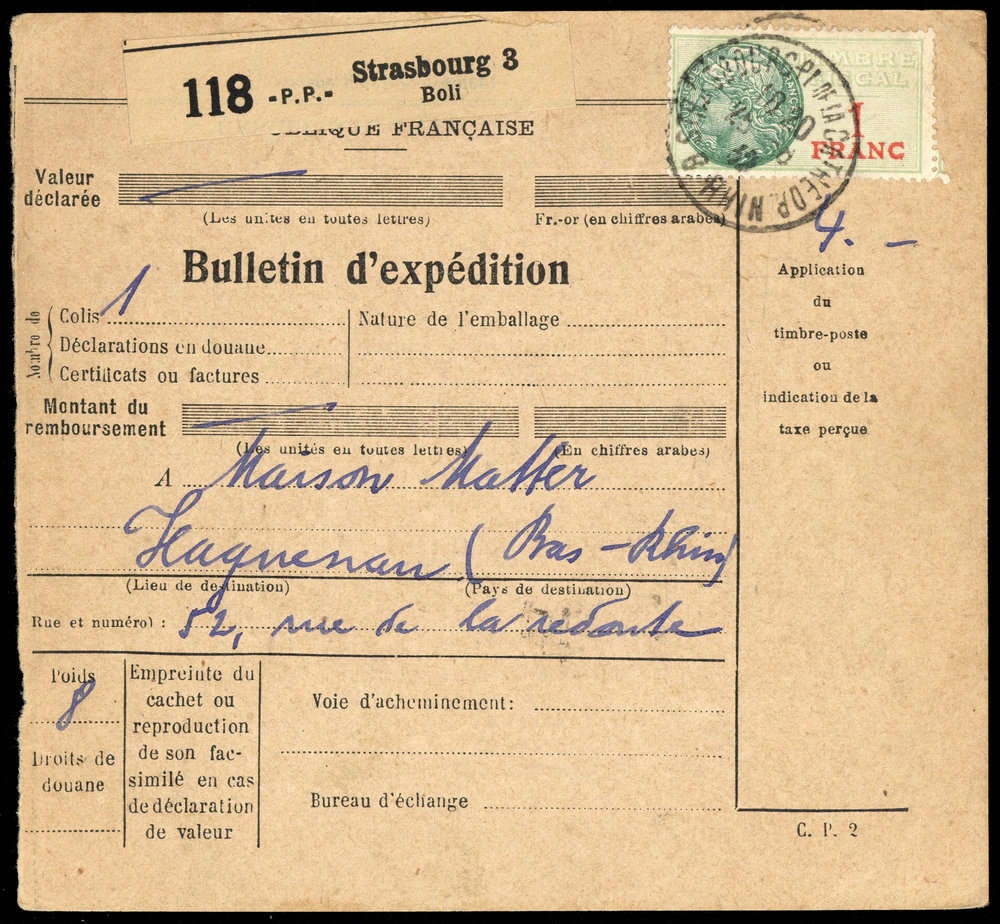 118 -P.P.- Strasbourg 3
Boli
BLIQUE FRANÇAISE
TIMBRE
FISCAL
1
FRANC
PL DE LA CATHEDR.
Valeur
déclarée
(Les unités en toutes lettres)
Fr.-or (en chiffres arabes)
4. -
Application
du
timbre-poste
ou
indication de la
taxe perçue
Bulletin d'expédition
Nombre de
Colis 1
Déclarations en douane
Certificats ou factures
Nature de l'emballage
Montant du
remboursement
(Les unités en toutes lettres)
(En chiffres arabes)
A Maison Matter
Haguenau (Bas-Rhin)
(Lieu de destination)
(Pays de destination)
Rue et numéro) : 52, rue de la redoute
Poids
8
Droits de
douane
Empreinte du
cachet ou
reproduction
de son fac-
similé en cas
de déclaration
de valeur
Voie d'acheminement:
Bureau d'échange
C. P. 2